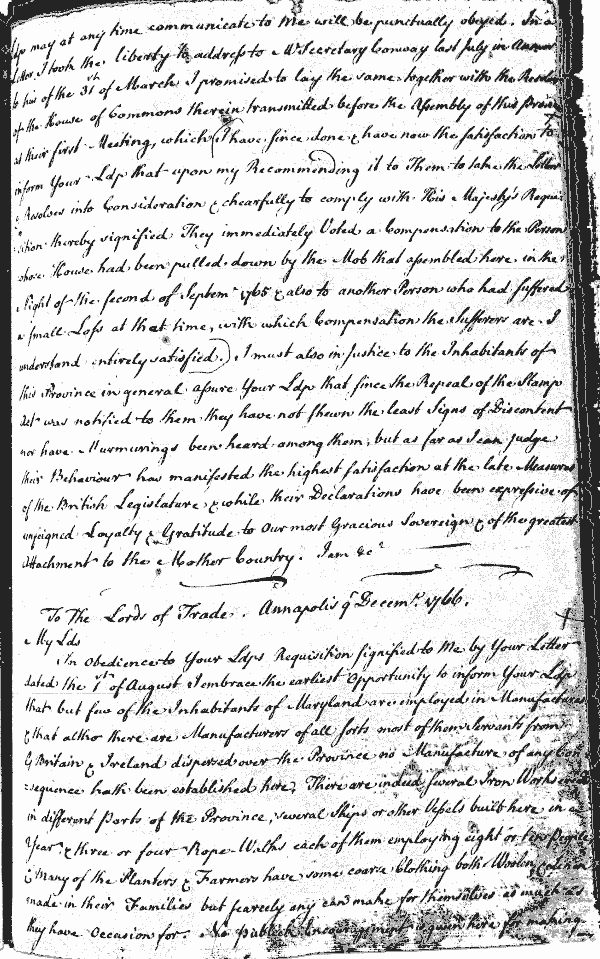 Ldp may at any time communicate to Me will be punctually obeyed. In a
Letter I took the liberty to address to Mr. Secretary Conway last July in Answer
to his of the 31st of March I promised to lay the same together with the Resolves
of the House of Commons therein transmitted before the Assembly of this Province
at their first Meeting, which (I have since done & have now the satisfaction to
inform Your Ldp that upon my Recommending it to Them to take the Letter
& Resolves into Consideration & chearfully to comply with His Majesty's Requi-
sition thereby signified They immediately Voted a Compensation to the Person
whose House had been pulled down by the Mob that assembled here in the
Night of the second of Septemr. 1765 & also to another Person who had suffered
a small Loss at that time, with which Compensation the Sufferers are I
understand entirely satisfied.) I must also in Justice to the Inhabitants of
this Province in general assure Your Ldp that since the Repeal of the Stamp
Act was notified to them they have not shewn the least Signs of Discontent
nor have Murmurings been heard among them, but as far as I can judge
their Behaviour has manifested the highest satisfaction at the late Measures
of the British Legislature & while their Declarations have been expressive of
unfeigned Loyalty & Gratitude to Our most Gracious Sovereign & of the greatest
Attachment to the Mother Country. I am &ca
To The Lords of Trade. Annapolis 9 Decemr. 1766.
My Lds
In Obedience to Your Ldps Requisition signified to Me by Your Letter
dated the 1st of August I embrace the earliest Opportunity to inform Your Ldps
that but few of the Inhabitants of Maryland are employed in Manufactures
& that altho there are Manufacturers of all sorts most of them Servants from
G Britain & Ireland dispersed over the Province no Manufacture of any Con-
=sequence hath been established here, There are indeed several Iron Works
in different parts of the Province, several Ships or other Vessels built here in a
Year, & three or four Rope-Walks each of them employing eight or ten People
& Many of the Planters & Farmers have some coarse Clothing both Woolen & Linen
made in their Families but scarcely any can make for themselves as much as
they have Occasion for. No publick Encouragement is given here for making